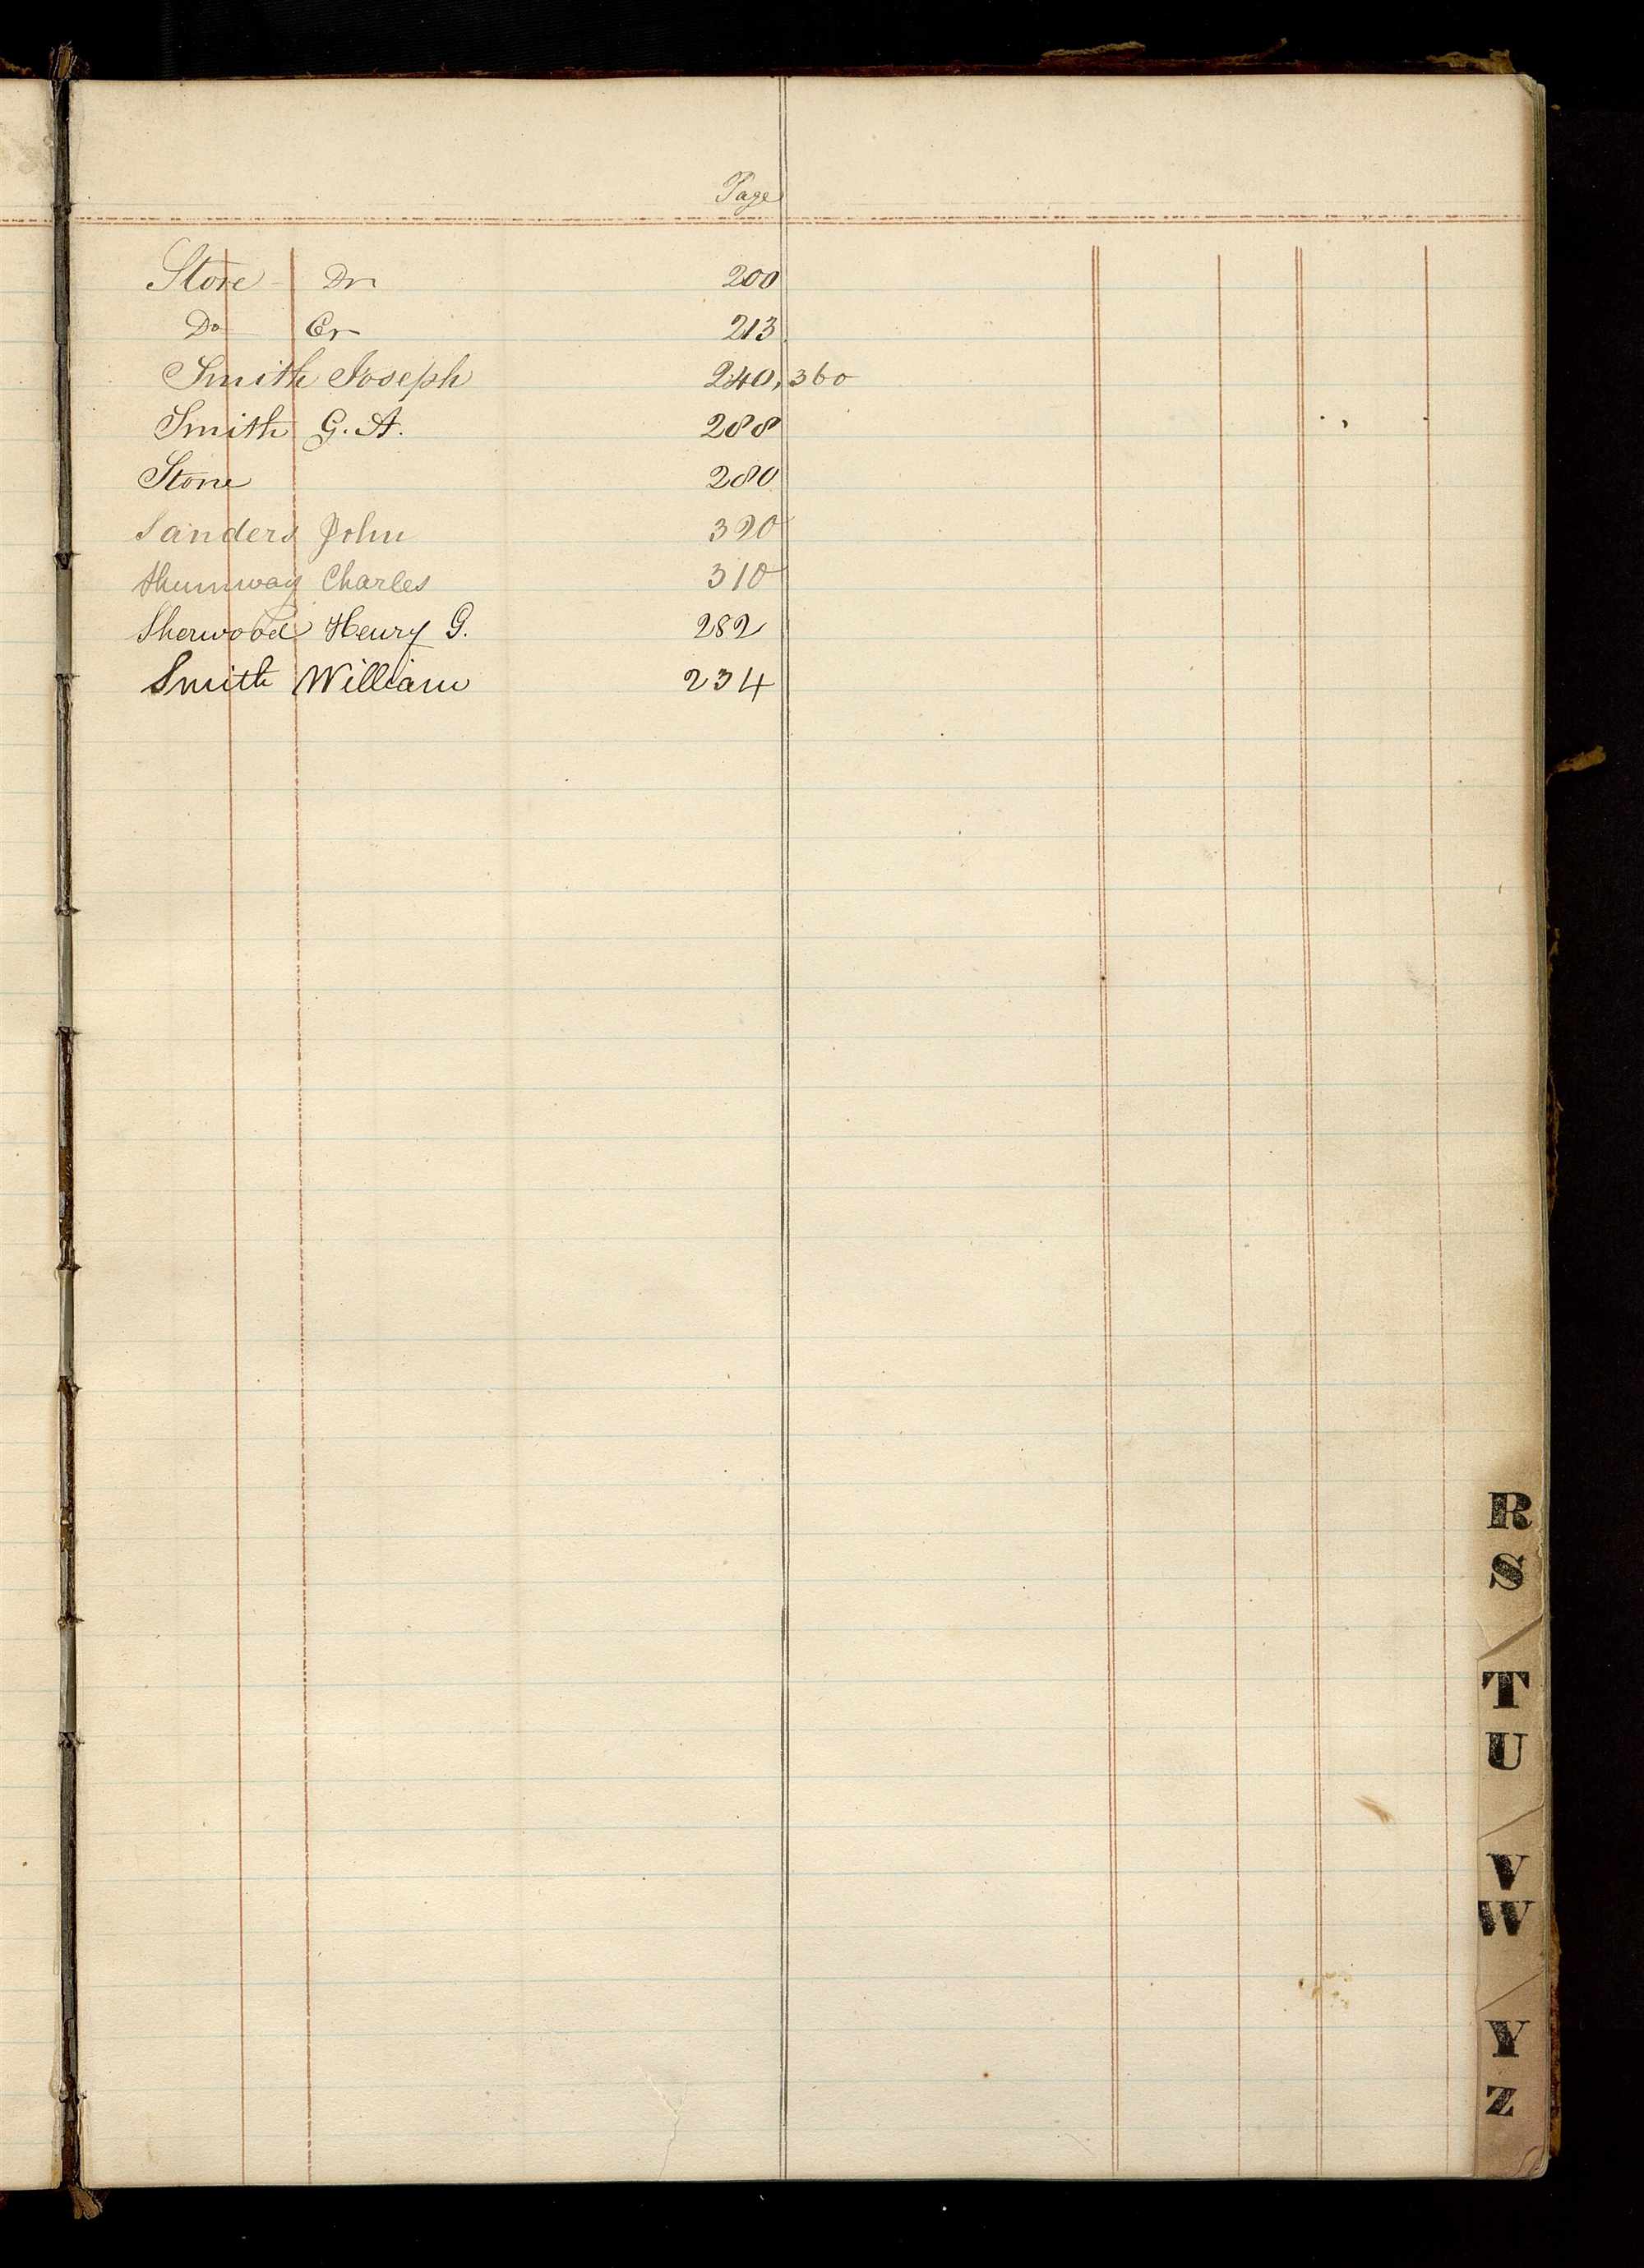 Page
Store - Dr 200
Do Cr 213
Smith Joseph 240, 360
Smith G. A. 288
Stone 280
Sanders John 320
Shumway Charles 310
Sherwood Henry G. 282
Smith William 234
R
S
T
U
V
W
Y
Z